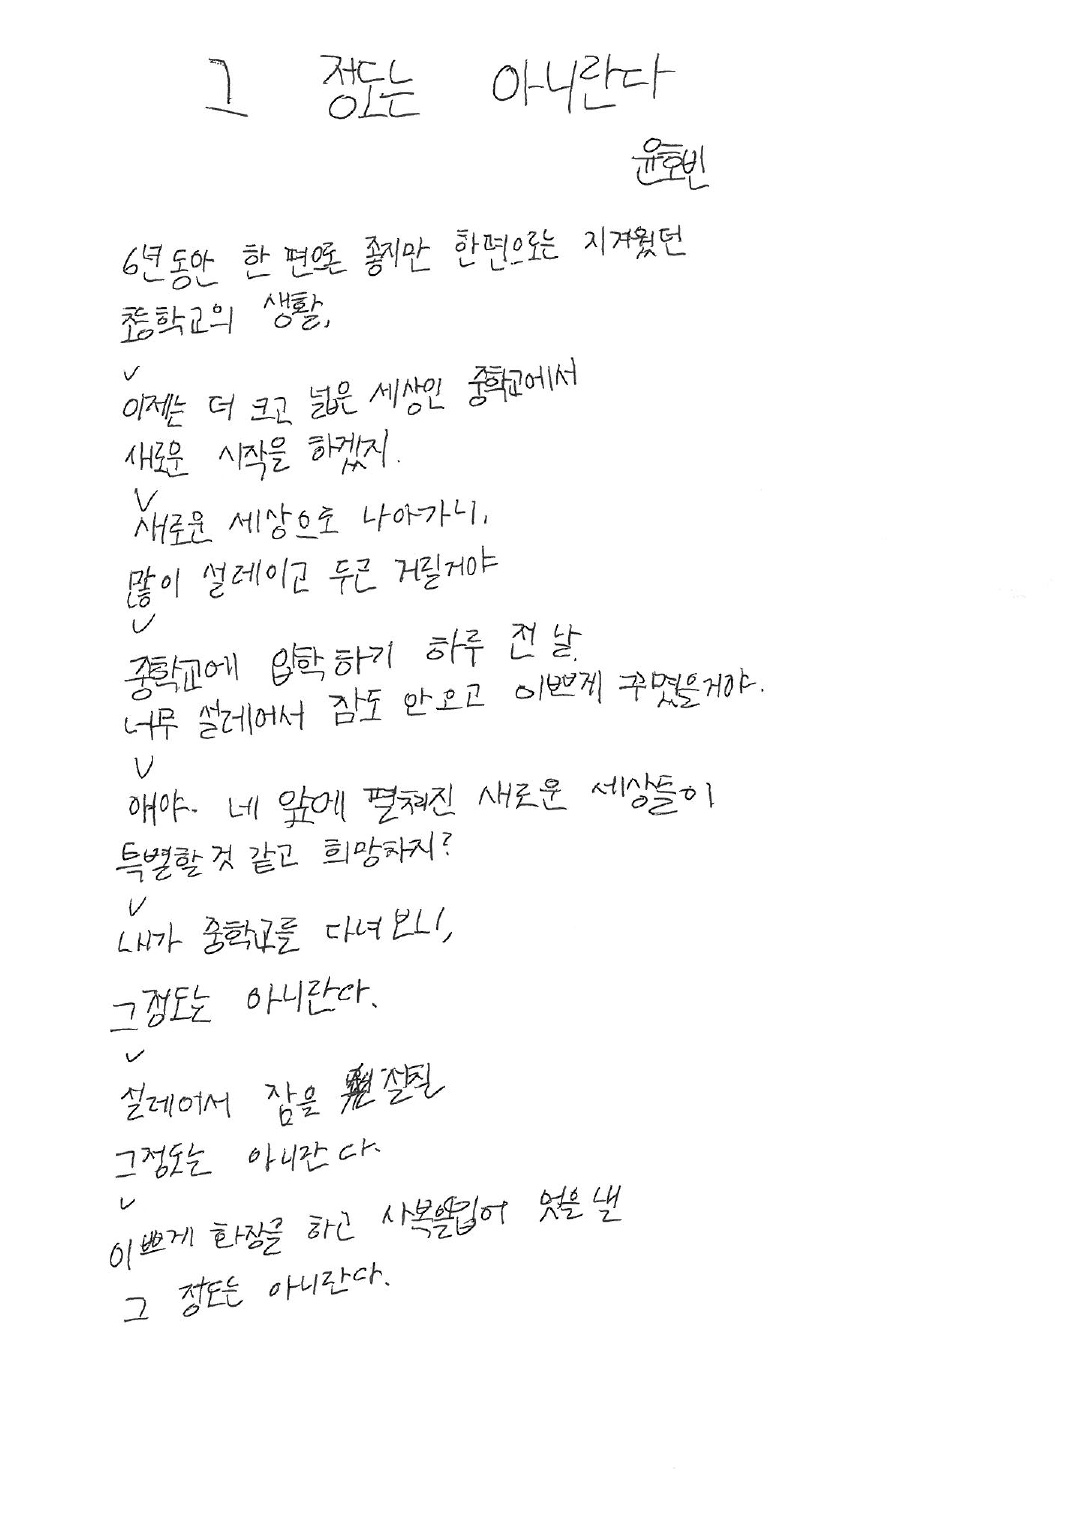 그 정도는 아니란다
윤호빈
6년동안 한 편으론 좋지만 한편으로는 지겨웠던
초등학교의 생활,
이제는 더 크고 넓은 세상인 중학교에서
새로운 시작을 하겠지.
새로운 세상으로 나아가니,
많이 설레이고 두근 거릴거야
중학교에 입학하기 하루 전 날,
너무 설레어서 잠도 안오고 이쁘게 꾸몄을거야.
얘야. 네 앞에 펼쳐진 새로운 세상들이
특별할것 같고 희망차지?
내가 중학교를 다녀보니,
그정도는 아니란다.
설레어서 잠을 설칠
그정도는 아니란다.
이쁘게 화장을 하고 사복을입어 멋을 낼
그 정도는 아니란다.